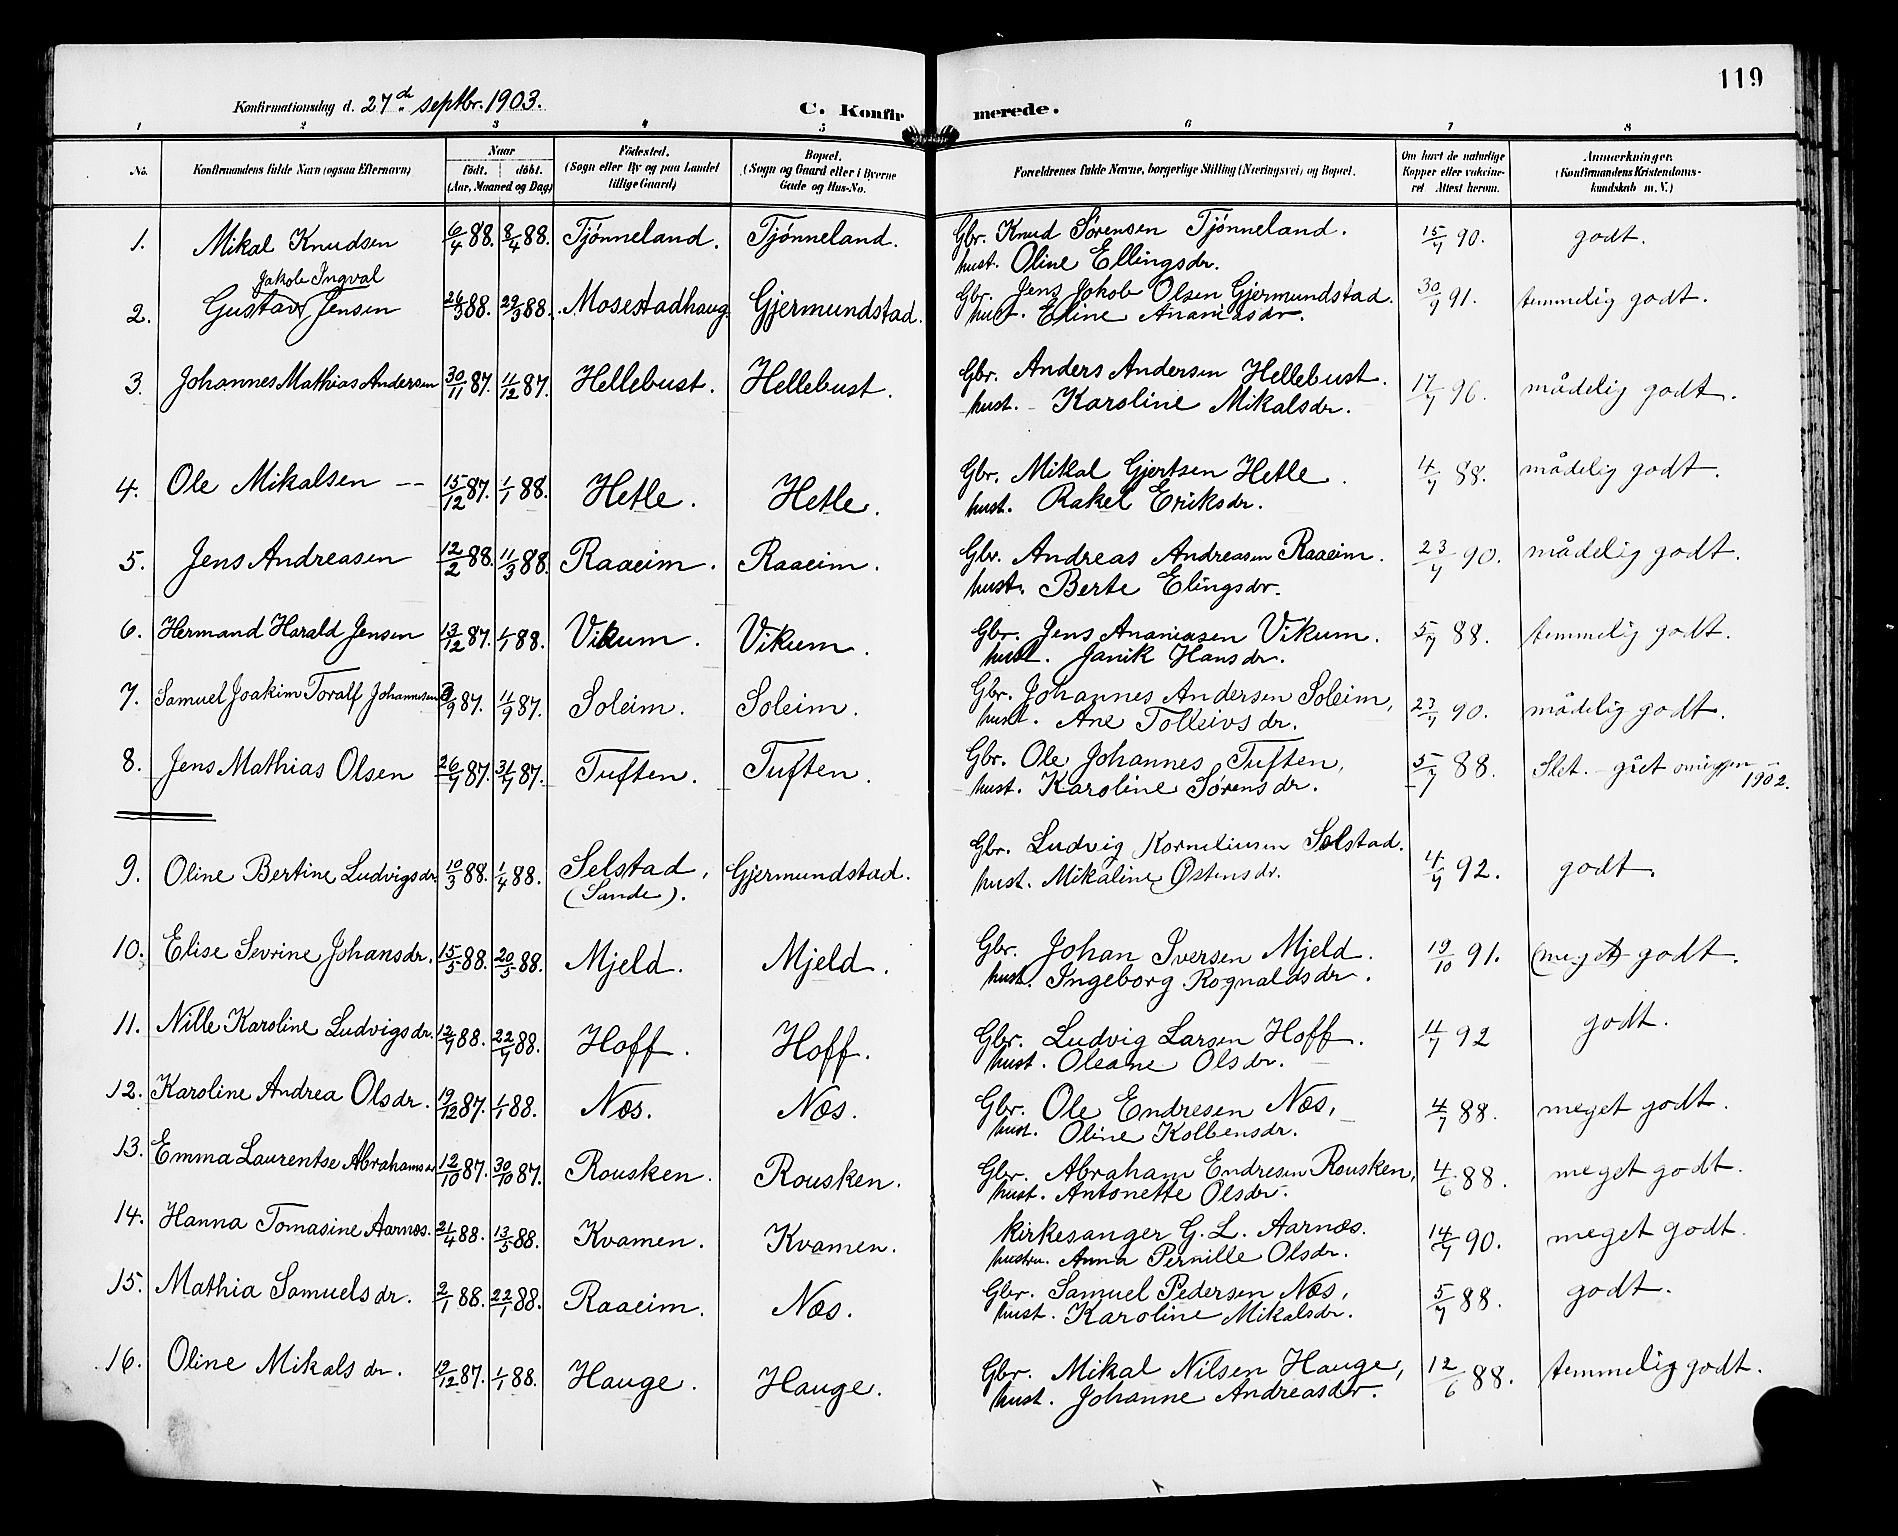 119
Konfirmationsdag d. 27de septbr. 1903.
C. Konfirmerede.
1 2 3 4 5 6 7 8
No. Konfirmandens fulde Navn (ogsaa Efternavn) Naar født. døbt. (Aar, Maaned og Dag) Fødested. (Sogn eller By og paa Landet tillige Gaard) Bopæl. (Sogn og Gaard eller i Byerne Gade og Hus-No. Forældrenes fulde Navne, borgerlige Stilling (Næringsvei) og Bopæl. Om havt de naturlige Kopper eller vaccineret Attest herom. Anmærkninger. (Konfirmandens Kristendomskundskab m. V.)
1. Mikal Knudsen 6/4 88. 8/4 88. Tjønneland. Tjønneland. Gbr. Knud Sørensen Tjønneland. 15/7 90. godt.
hust. Oline Ellingsdr.
Jakob Ingval
2. Gustav Jensen 26/3 88. 29/3 88. Mosestadhaug Gjermundstad. Gbr. Jens Jakob Olsen Gjermundstad. 30/9 91. temmelig godt.
hust. Eline Ananiasdr.
3. Johannes Mathias Andersen 30/11 87. 11/12 87. Hellebust. Hellebust. Gbr. Anders Andersen Hellebust. 17/7 96. mådelig godt.
hust. Karoline Mikalsdr.
4. Ole Mikalsen -- 15/12 87. 1/1 88. Hetle. Hetle. Gbr. Mikal Gjertsen Hetle. 4/7 88. mådelig godt.
hust. Rakel Eriksdr.
5. Jens Andreasen 12/2 88. 11/3 88. Raaeim. Raaeim. Gbr. Andreas Andreasen Raaeim. 23/7 90. mådelig godt.
hust. Berte Elingsdr.
6. Hermand Harald Jensen 13/12 87. 1/1 88. Vikum. Vikum. Gbr. Jens Ananiasen Vikum. 5/7 88. temmelig godt.
hust. Janik Hansdr.
7. Samuel Joakim Toralf Johannesen /9 87. 11/9 87. Soleim. Soleim. Gbr. Johannes Andersen Soleim, 23/7 90. mådelig godt.
hust. Ane Tolleivsdr.
8. Jens Mathias Olsen 26/7 87. 31/7 87. Tuften. Tuften. Gbr. Ole Johannes Tuften, 5/7 88. Slet. - gået 1902.
hust. Karoline Sørensdr.
9. Oline Bertine Ludvigsdr. 10/3 88. 1/4 88. Selstad, (Sande). Gjermundstad. Gbr. Ludvig Korneliusen Selstad. 4/7 92. godt.
hust. Mikaline Østensdr.
10. Elise Sevrine Johansdr. 15/5 88. 20/5 88. Mjeld. Mjeld. Gbr. Johan Iversen Mjeld. 19/10 91. (meget) godt.
hust. Ingeborg Rognaldsdr.
11. Nille Karoline Ludvigsdr. 12/7 88. 22/7 88. Hoff. Hoff. Gbr. Ludvig Larsen Hoff. 4/7 92 godt.
hust. Oleane Olsdr.
12. Karoline Andrea Olsdr. 19/12 87. 1/1 88. Næs. Næs. Gbr. Ole Endresen Næs, 4/7 88. meget godt.
hust. Oline Kolbensdr.
13. Emma Laurentse Abrahamsdr 12/10 87. 30/10 87. Rousken. Rousken. Gbr. Abraham Endresen Rousken, 4/6 88. meget godt.
hust. Antonette Olsdr.
14. Hanna Tomasine Aarnæs. 21/4 88. 13/5 88. Kvamen. Kvamen. Kirkesanger G. L. Aarnæs. 14/7 90. meget godt.
hustru. Anna Pernille Olsdr.
15. Mathia Samuelsdr. 2/1 88. 22/1 88. Raaeim. Næs. Gbr. Samuel Pedersen Næs, 5/7 88. godt.
hust. Karoline Mikalsdr.
16. Oline Mikalsdr. 19/12 87. 1/1 88. Hauge. Hauge. Gbr. Mikal Nilsen Hauge, 12/6 88. temmelig godt.
hust. Johanne Andreasdr.